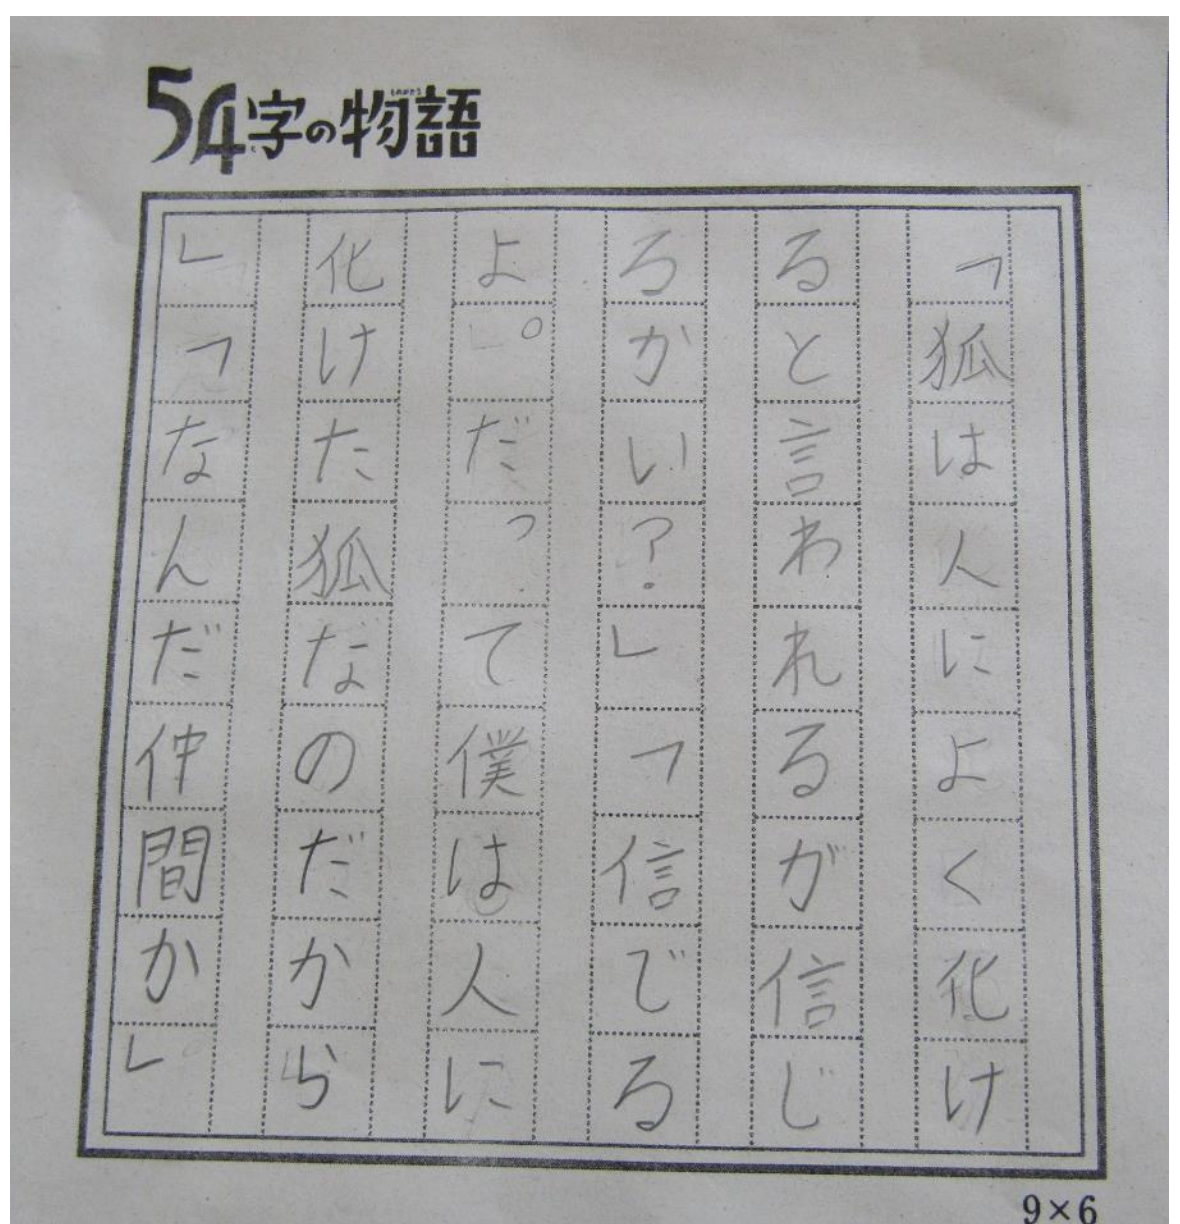 54字の物語
「狐は人によく化け
ると言われるが信じ
るかい?」「信じる
よ。だって僕は人に
化けた狐なのだから
」「なんだ仲間か」
9×6